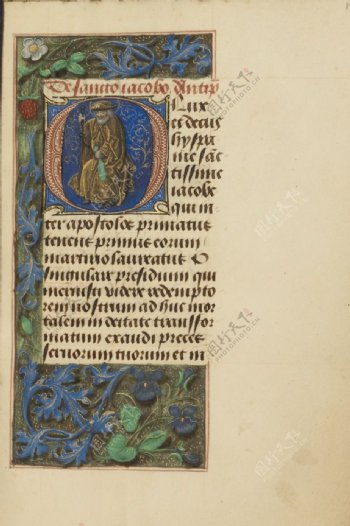 De sancto iacobo Antip̄
O Lux
et decus
hyspa
nie sāc
tissime
iacobe
qui in
ter apostolos primatus
tenens primus eorum
martirio laureatus O
singulare presidium qui
meruisti videre redempto
rem nostrum ad huc mor
talem in deitate transfor
matum exaudi preces
seruorum tuorum et in